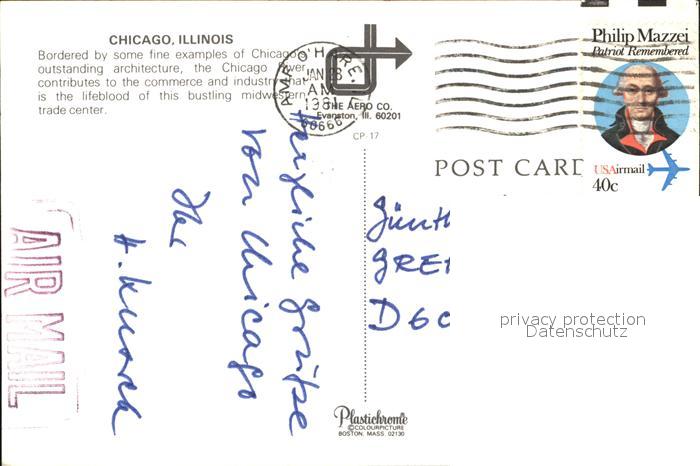 CHICAGO, ILLINOIS
Bordered by some fine examples of Chicago's
outstanding architecture, the Chicago River
contributes to the commerce and industry that
is the lifeblood of this bustling midwestern
trade center.
AMF O'HARE, IL
JAN 28
AM
1981
60666
THE AERO CO.
Evanston, Ill. 60201
CP-17
Philip Mazzei
Patriot Remembered
USAirmail
40c
POST CARD
Herzliche Grüße
von Chicago
Ihr
AIR MAIL
Günth
GRE
D 6
privacy protection
Datenschutz
Plastichrome
©COLOURPICTURE
BOSTON, MASS. 02130